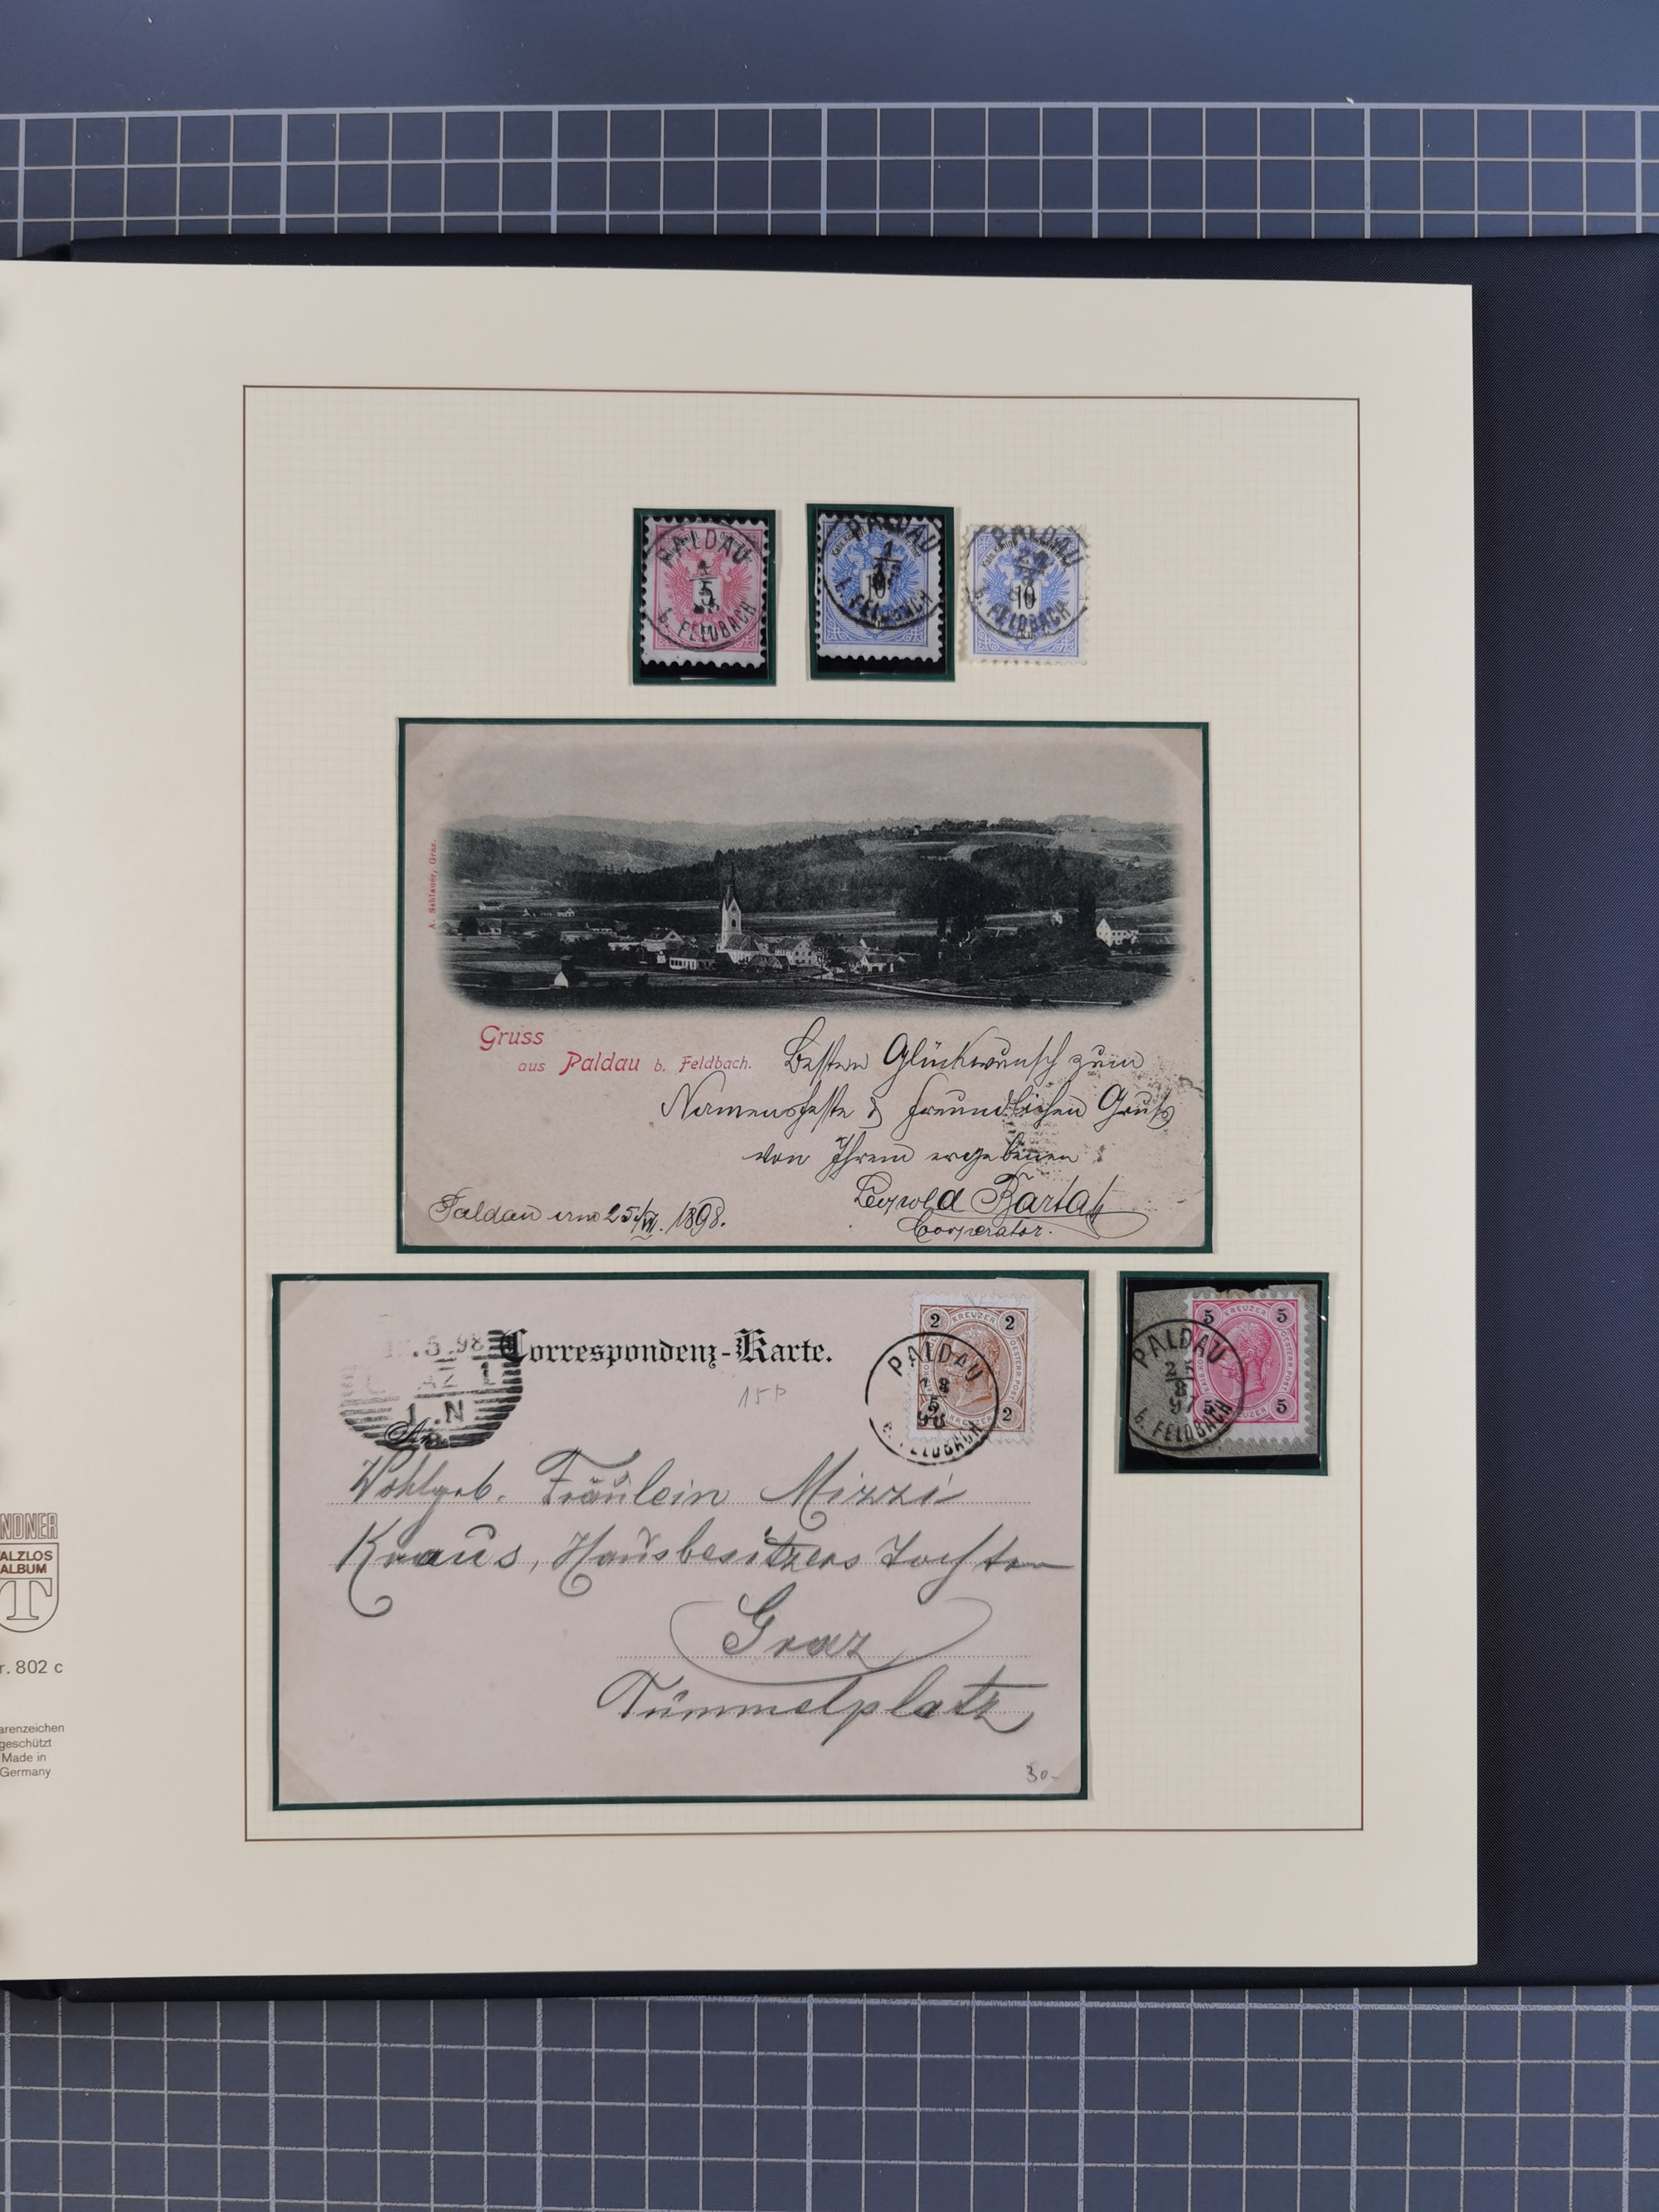 PALDAU
5
b. FELDBACH
PALDAU
1
10
b. FELDBACH
PALDAU
10
b. FELDBACH
A. Schlauer, Graz.
Gruss
aus Paldau b. Feldbach.
Besten Glückwunsch zum
Namensfeste & freundlichen Gruß
von Ihrem ergebenen
Bartat
Cooperator.
Paldau 25/VII. 1898.
.5.98
Correspondenz-Karte.
15P
2 KREUZER 2
2 KREUZER 2
PALDAU
8
5
98
b. FELDBACH
Wohlgeb. Fräulein Mizzi
Kraus, Hausbesitzers Tochter
Graz
Tummelplatz
30-
5 KREUZER 5
OESTERR. POST
5 KREUZER 5
PALDAU
8
97
b. FELDBACH
NDNER
ALZLOS
ALBUM
T
r. 802 c
arenzeichen
geschützt
Made in
Germany